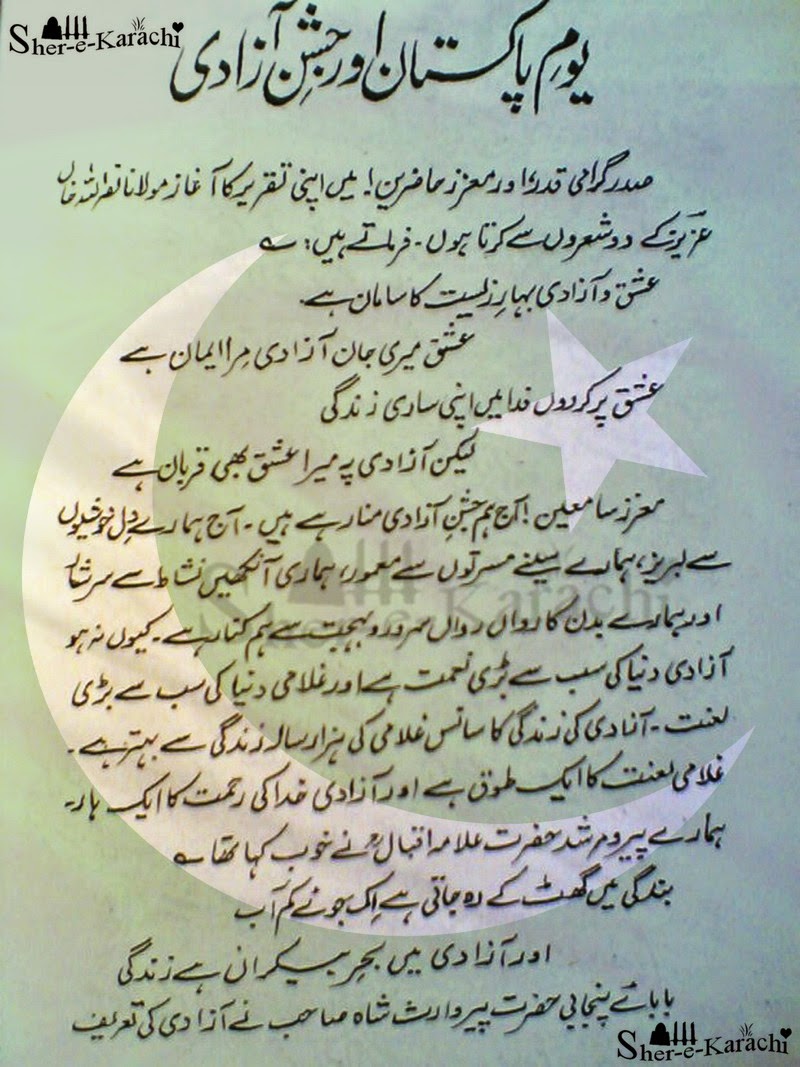 Sher-e-Karachi
یومِ پاکستان اور جشنِ آزادی
صدرِ گرامی قدر، اور معزز حاضرین! میں اپنی تقریر کا آغاز مولانا نصراللہ خاں
عزیز کے دو شعروں سے کرتا ہوں۔ فرماتے ہیں: ؎
عشق و آزادی بہارِ زیست کا سامان ہے
عشق میری جان آزادی مِرا ایمان ہے
عشق پر کردوں فدا میں اپنی ساری زندگی
لیکن آزادی پہ میرا عشق بھی قربان ہے
معزز سامعین! آج ہم جشنِ آزادی منا رہے ہیں۔ آج ہمارے دِل خوشیوں
سے لبریز، ہمارے سینے مسرتوں سے معمور، ہماری آنکھیں نشاط سے سرشار
اور ہمارے بدن کا رواں رواں سرور و بہجت سے ہم کنار ہے۔ کیوں نہ ہو
آزادی دنیا کی سب سے بڑی نعمت ہے اور غلامی دنیا کی سب سے بڑی
لعنت۔ آزادی کی زندگی کا سانس غلامی کی ہزار سالہ زندگی سے بہتر ہے۔
غلامی لعنت کا ایک طوق ہے اور آزادی خدا کی رحمت کا ایک ہار۔
ہمارے پیر و مرشد حضرت علامہ اقبالؒ نے خوب کہا تھا ؎
بندگی میں گھٹ کے رہ جاتی ہے اِک جوئے کم آب
اور آزادی میں بحرِ بیکراں ہے زندگی
بابائے پنجابی حضرت پیر وارث شاہ صاحب نے آزادی کی تعریف
Sher-e-Karachi
Sher-e-Karachi